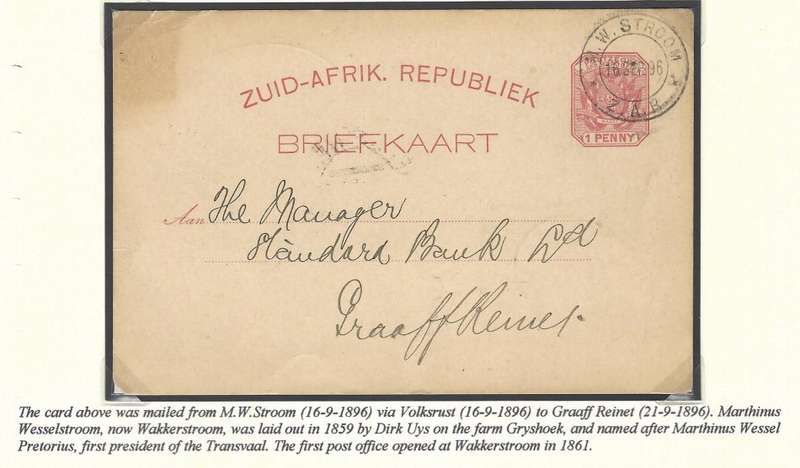 M.W. STROOM
16 SEP 96
Z.A.R.
ZUID-AFRIK. REPUBLIEK
BRIEFKAART
1 PENNY
Aan The Manager
Standard Bank Ld
Graaff Reinet.
The card above was mailed from M.W.Stroom (16-9-1896) via Volksrust (16-9-1896) to Graaff Reinet (21-9-1896). Marthinus
Wesselstroom, now Wakkerstroom, was laid out in 1859 by Dirk Uys on the farm Gryshoek, and named after Marthinus Wessel
Pretorius, first president of the Transvaal. The first post office opened at Wakkerstroom in 1861.